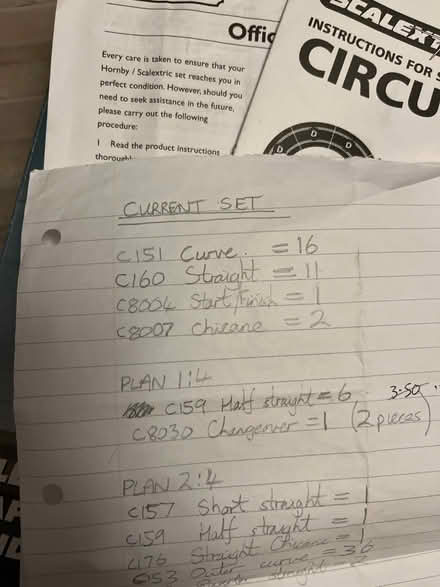 Offic
Every care is taken to ensure that your
Hornby / Scalextric set reaches you in
perfect condition. However, should you
need to seek assistance in the future,
please carry out the following
procedure:
1 Read the product instructions
thorough
SCALEXT
INSTRUCTIONS FOR S
CIRCU
D D D
CURRENT SET
C151 Curve. = 16
C160 Straight = 11
C8004 Start/Finish = 1
C8007 Chicane = 2
PLAN 1:4
C159 Half straight = 6 3-50
C8030 Changeover = 1 (2 pieces)
PLAN 2:4
C157 Short straight = 1
C159 Half straight = 1
C176 Straight Chicane = 1
C153 Outer curve = 36
straight =